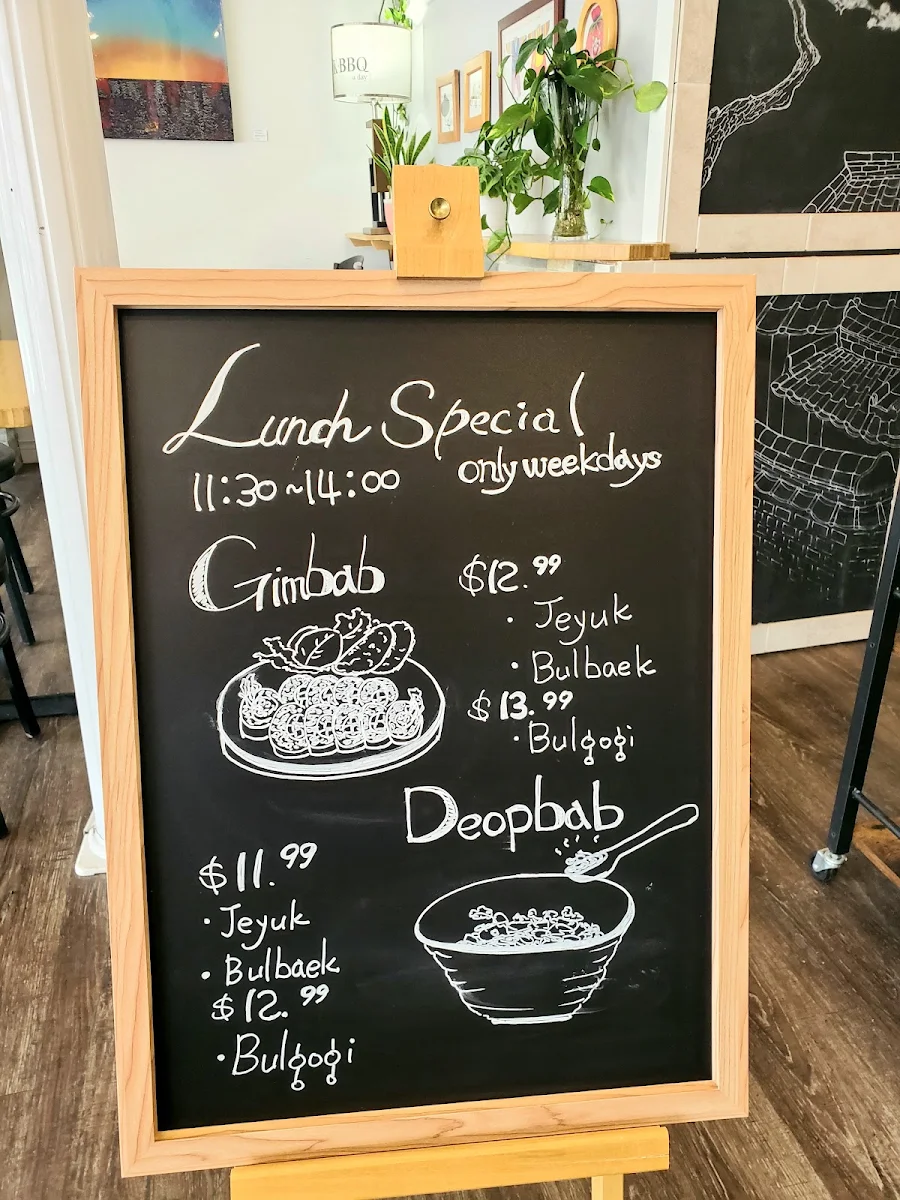 K-BBQ
a day
Lunch Special
11:30 ~14:00 only weekdays
Gimbab
$12.99
· Jeyuk
· Bulbaek
$13.99
· Bulgogi
Deopbab
$11.99
· Jeyuk
· Bulbaek
$12.99
· Bulgogi